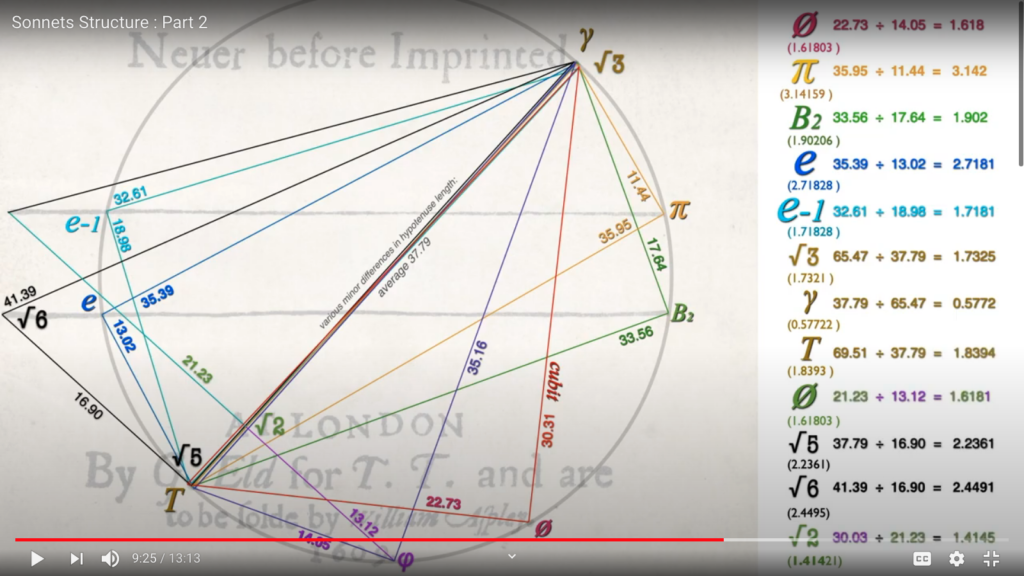 Sonnets Structure : Part 2
Neuer before Imprinted.
γ
√3
e-1
32.61
18.98
11.44
π
35.95
17.64
various minor differences in hypotenuse length:
average 37.79
41.39
√6
e
35.39
13.02
B2
33.56
35.16
21.23
cubit
30.31
16.90
√2
AT LONDON
√5
T
By G. Eld for T. T. and are
to be solde by William Aspley.
22.73
13.12
Ø
φ
1609
Ø 22.73 ÷ 14.05 = 1.618
(1.61803 )
π 35.95 ÷ 11.44 = 3.142
(3.14159 )
B2 33.56 ÷ 17.64 = 1.902
(1.90206 )
e 35.39 ÷ 13.02 = 2.7181
(2.71828 )
e-1 32.61 ÷ 18.98 = 1.7181
(1.71828 )
√3 65.47 ÷ 37.79 = 1.7325
(1.7321 )
γ 37.79 ÷ 65.47 = 0.5772
(0.57722 )
T 69.51 ÷ 37.79 = 1.8394
(1.8393 )
Ø 21.23 ÷ 13.12 = 1.6181
(1.61803 )
√5 37.79 ÷ 16.90 = 2.2361
(2.2361)
√6 41.39 ÷ 16.90 = 2.4491
(2.4495)
√2 30.03 ÷ 21.23 = 1.4145
(1.41421 )
9:25 / 13:13
CC